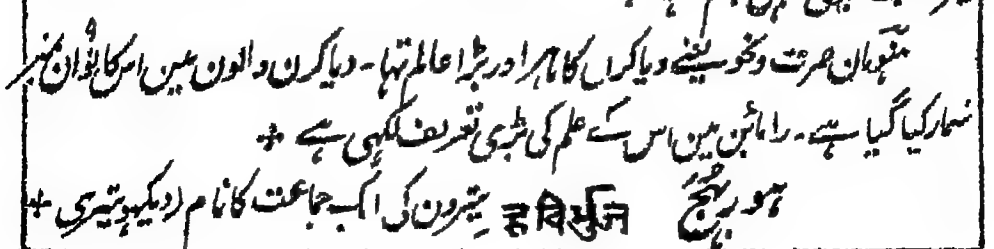 ہنومان صرف و نحو یعنے ویاکرن کا ماہر اور بڑا عالم تہا۔ ویاکرن والون مین اس کا نوان نمبر
شمار کیا گیا ہے۔ رامائن مین اس کے علم کی بڑی تعریف لکہی ہے +
ہوربہُج हविर्भुज پترون کی ایک جماعت کا نام (دیکہو پتری +